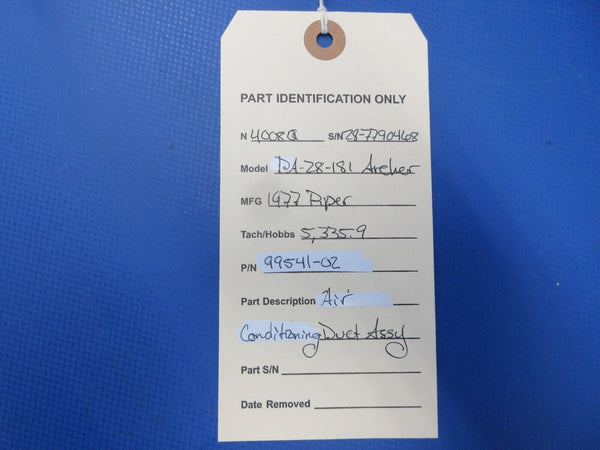 PART IDENTIFICATION ONLY
N 4008Q S/N 28-7790468
Model PA-28-181 Archer
MFG 1977 Piper
Tach/Hobbs 5,335.9
P/N 99541-02
Part Description Air
Conditioning Duct Assy
Part S/N
Date Removed